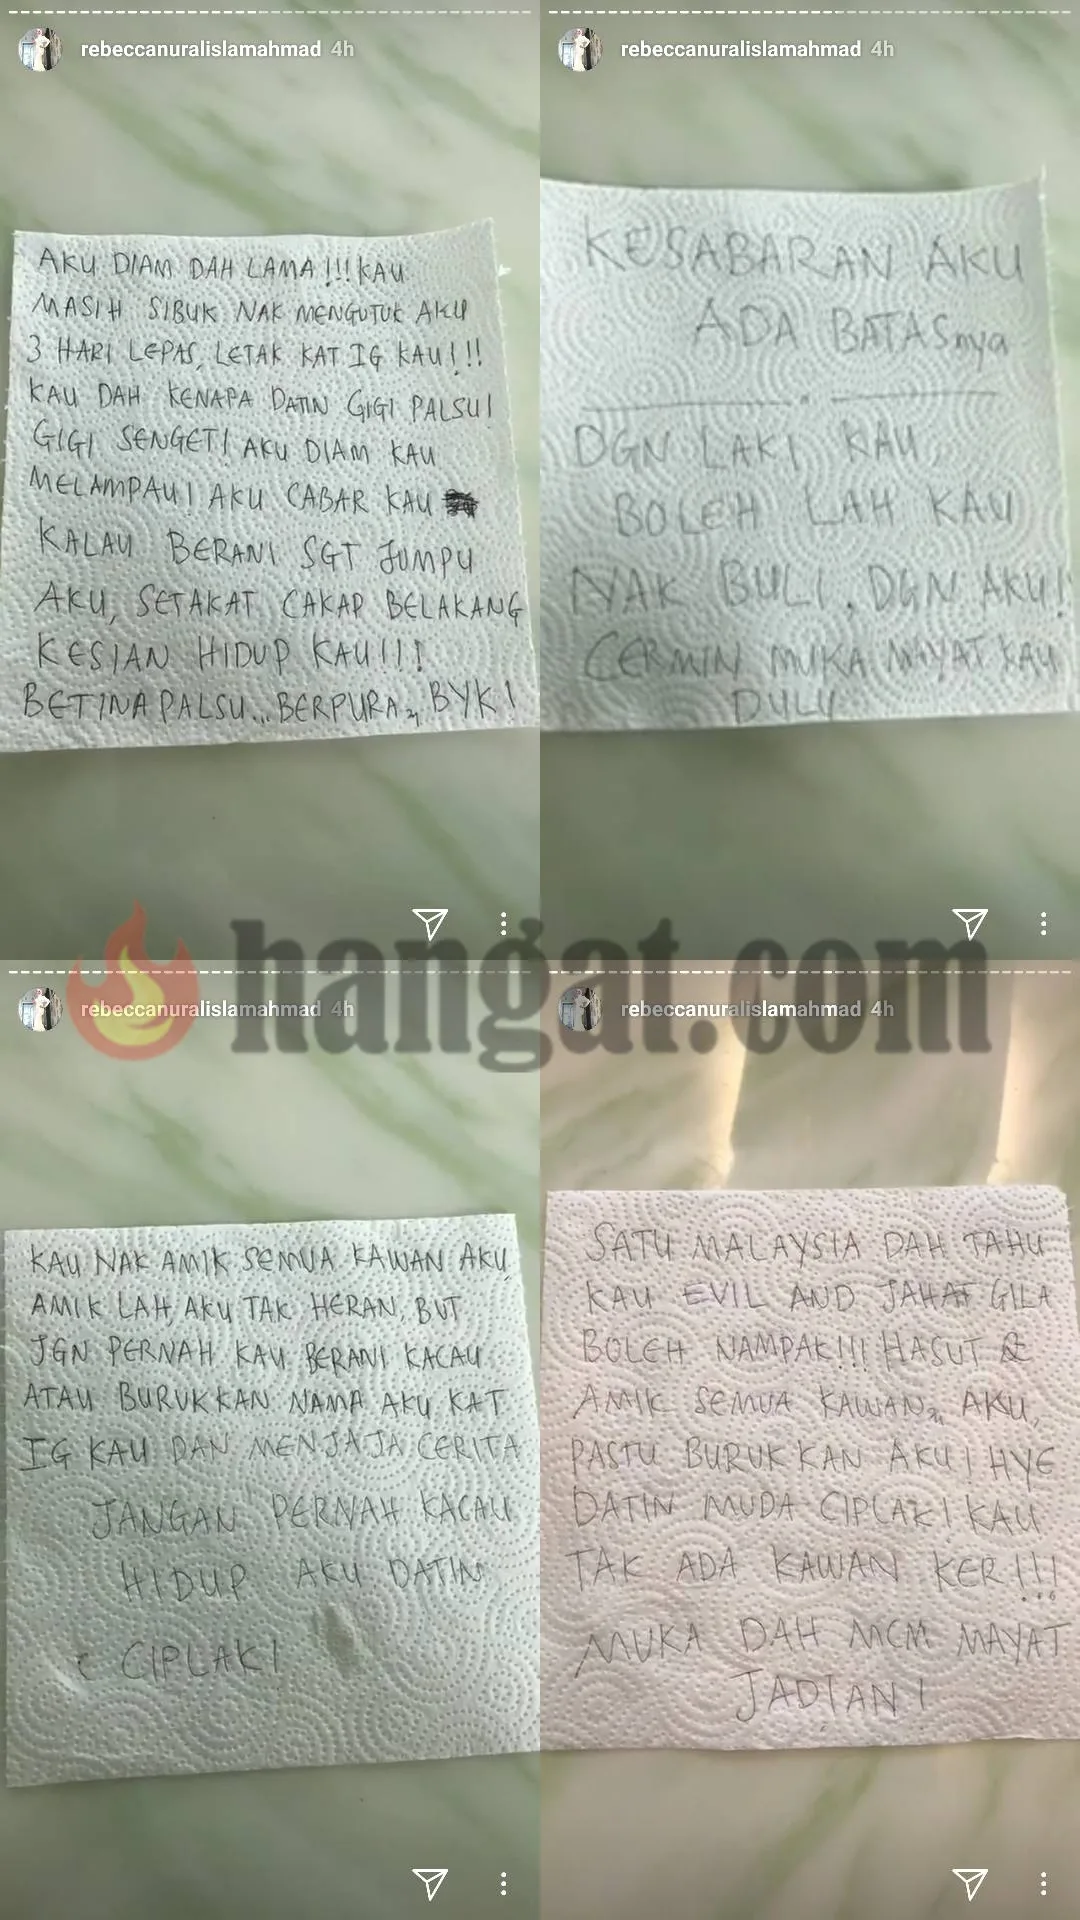 rebeccanuralislamahmad 4h
AKU DIAM DAH LAMA!!! KAU
MASIH SIBUK NAK MENGUTUK AKU
3 HARI LEPAS, LETAK KAT IG KAU!!!
KAU DAH KENAPA DATIN GIGI PALSU!
GIGI SENGET! AKU DIAM KAU
MELAMPAU! AKU CABAR KAU
KALAU BERANI SGT JUMPU
AKU, SETAKAT CAKAP BELAKANG
KESIAN HIDUP KAU!!!
BETINA PALSU... BERPURA2, BYK!
rebeccanuralislamahmad 4h
KESABARAN AKU
ADA BATASnya
DGN LAKI KAU,
BOLEH LAH KAU
NAK BULI, DGN AKU!
CERMIN MUKA MAYAT KAU
DULU
hangat.com
rebeccanuralislamahmad 4h
KAU NAK AMIK SEMUA KAWAN AKU,
AMIK LAH, AKU TAK HERAN, BUT
JGN PERNAH KAU BERANI KACAU
ATAU BURUKKAN NAMA AKU KAT
IG KAU DAN MENJAJA CERITA
JANGAN PERNAH KACAU
HIDUP AKU DATIN
CIPLAK!
rebeccanuralislamahmad 4h
SATU MALAYSIA DAH TAHU
KAU EVIL AND JAHAT GILA
BOLEH NAMPAK!!! HASUT &
AMIK SEMUA KAWAN2 AKU,
PASTU BURUKKAN AKU! HYE
DATIN MUDA CIPLAK! KAU
TAK ADA KAWAN KER!!!
MUKA DAH MCM MAYAT
JADIAN!